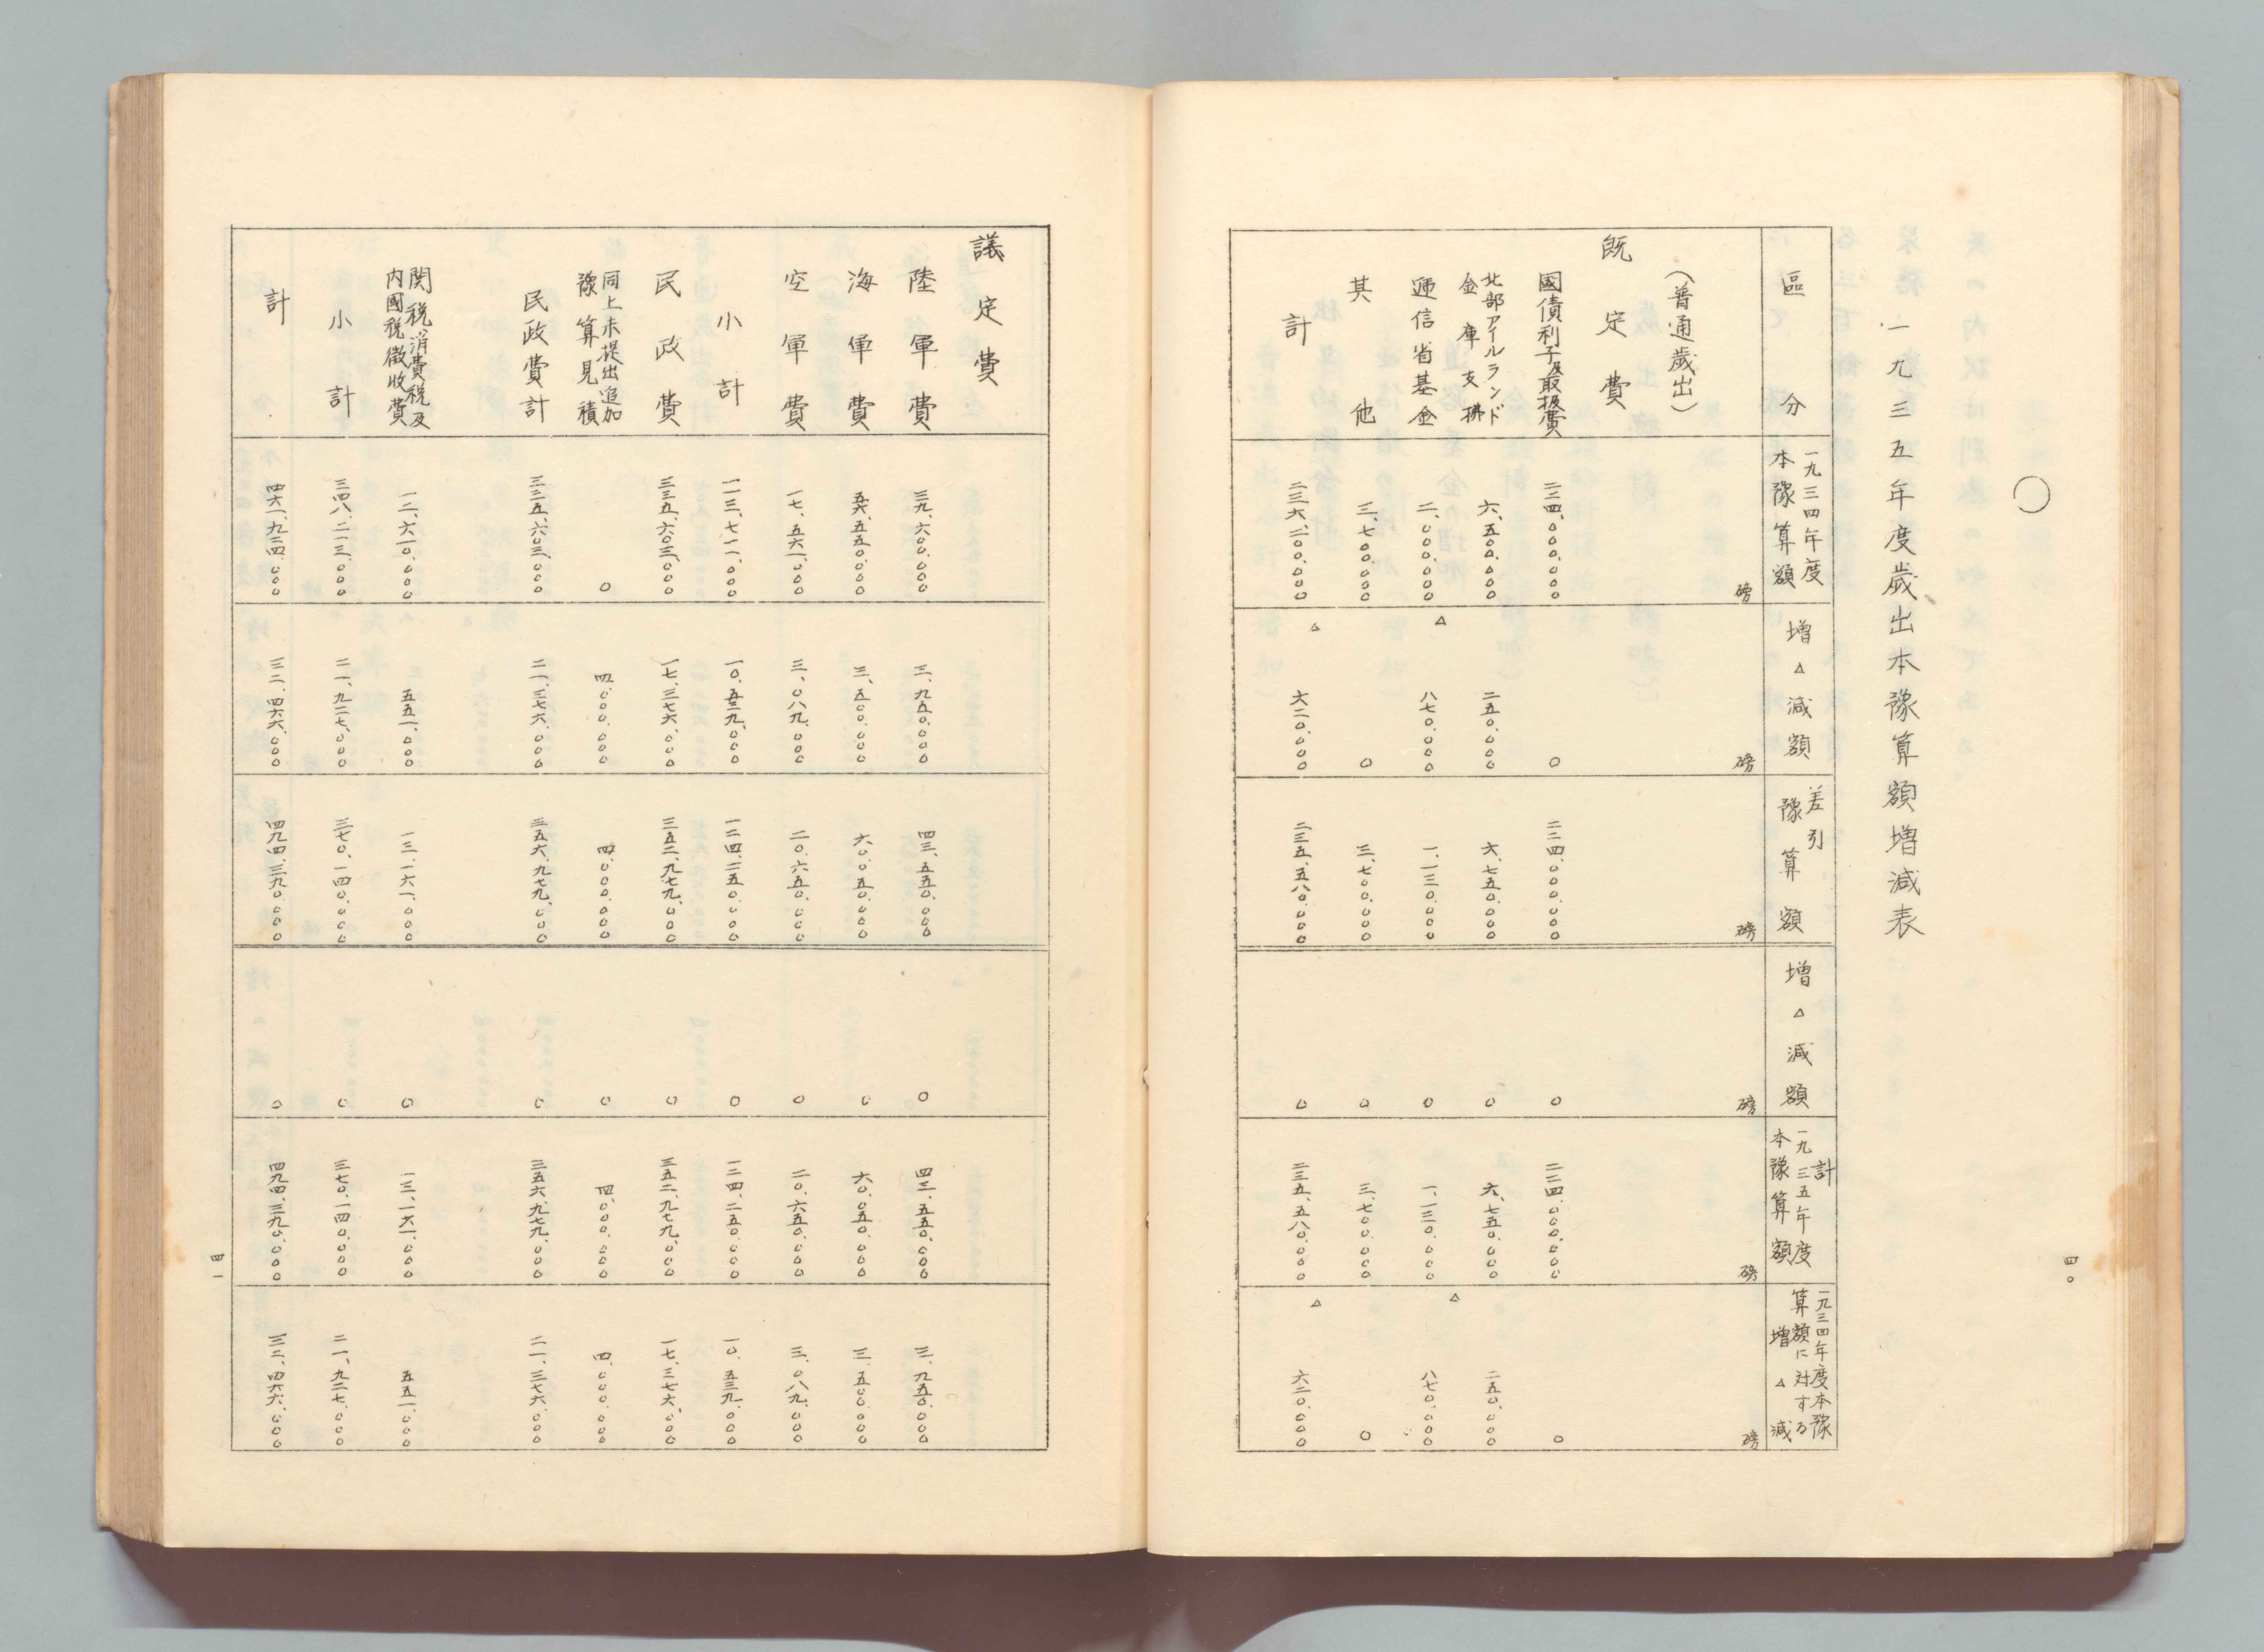 一九三五年度歲出本豫算額増減表
區分
一九三四年度
本豫算額
増△減額
差引
豫算額
増△減額
計
一九三五年度
本豫算額
一九三四年度本豫
算額に対する
増△減
磅 磅 磅 磅 磅 磅
(普通歲出)
既定費
國債利子及取扱費 二二四、〇〇〇、〇〇〇 〇 二二四、〇〇〇、〇〇〇 〇 二二四、〇〇〇、〇〇〇 〇
北部アイルランド
金庫支拂 六、五〇〇、〇〇〇 二五〇、〇〇〇 六、七五〇、〇〇〇 〇 六、七五〇、〇〇〇 二五〇、〇〇〇
逓信省基金 二、〇〇〇、〇〇〇 △ 八七〇、〇〇〇 一、一三〇、〇〇〇 〇 一、一三〇、〇〇〇 △ 八七〇、〇〇〇
其他 三、七〇〇、〇〇〇 〇 三、七〇〇、〇〇〇 〇 三、七〇〇、〇〇〇 〇
計 二三六、二〇〇、〇〇〇 △ 六二〇、〇〇〇 二三五、五八〇、〇〇〇 〇 二三五、五八〇、〇〇〇 △ 六二〇、〇〇〇
四〇
議定費
陸軍費 三九、六〇〇、〇〇〇 三、九五〇、〇〇〇 四三、五五〇、〇〇〇 〇 四三、五五〇、〇〇〇 三、九五〇、〇〇〇
海軍費 五六、五五〇、〇〇〇 三、五〇〇、〇〇〇 六〇、〇五〇、〇〇〇 〇 六〇、〇五〇、〇〇〇 三、五〇〇、〇〇〇
空軍費 一七、五六一、〇〇〇 三、〇八九、〇〇〇 二〇、六五〇、〇〇〇 〇 二〇、六五〇、〇〇〇 三、〇八九、〇〇〇
小計 一一三、七一一、〇〇〇 一〇、五三九、〇〇〇 一二四、二五〇、〇〇〇 〇 一二四、二五〇、〇〇〇 一〇、五三九、〇〇〇
民政費 三三五、六〇三、〇〇〇 一七、三七六、〇〇〇 三五二、九七九、〇〇〇 〇 三五二、九七九、〇〇〇 一七、三七六、〇〇〇
同上未提出追加
豫算見積 〇 四、〇〇〇、〇〇〇 四、〇〇〇、〇〇〇 〇 四、〇〇〇、〇〇〇 四、〇〇〇、〇〇〇
民政費計 三三五、六〇三、〇〇〇 二一、三七六、〇〇〇 三五六、九七九、〇〇〇 〇 三五六、九七九、〇〇〇 二一、三七六、〇〇〇
関税消費税及
内國税徴收費 一二、六一〇、〇〇〇 五五一、〇〇〇 一三、一六一、〇〇〇 〇 一三、一六一、〇〇〇 五五一、〇〇〇
小計 三四八、二一三、〇〇〇 二一、九二七、〇〇〇 三七〇、一四〇、〇〇〇 〇 三七〇、一四〇、〇〇〇 二一、九二七、〇〇〇
計 四六一、九二四、〇〇〇 三二、四六六、〇〇〇 四九四、三九〇、〇〇〇 〇 四九四、三九〇、〇〇〇 三二、四六六、〇〇〇
四一